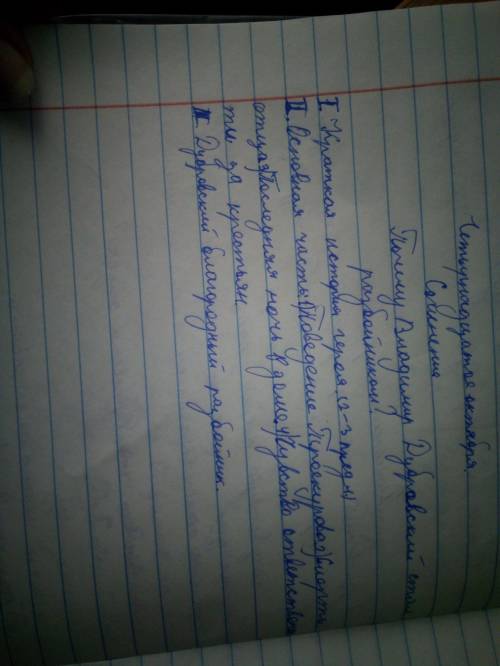 Четырнадцатое октября.
Сочинение
Почему Владимир Дубровский стал
разбойником?
I. Краткая история героя (2-3 пред-я)
II. Основная часть: 1) Поведение Троекурова 2) Смерть
отца 3) Последняя ночь в доме 4) Чувства ответствен
ти за крестьян.
III. Дубровский благородный разбойник.